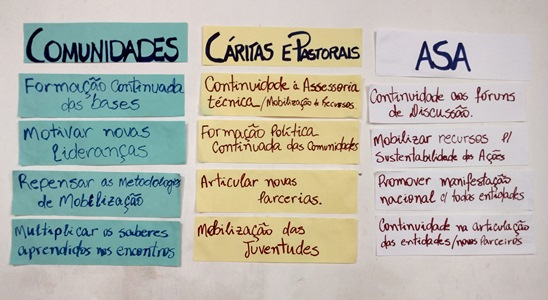 COMUNIDADES
Formação Continuada
das bases
Motivar novas
Lideranças
Repensar as Metodologias
de Mobilização
Multiplicar os saberes
aprendidos nos encontros
CÁRITAS E PASTORAIS
Continuidade à Assessoria
técnica / Mobilização de Recursos
Formação Política
Continuada das Comunidades
Articular novas
Parcerias.
Mobilização das
Juventudes
ASA
Continuidade aos fóruns
de Discussão.
Mobilizar recursos p/
Sustentabilidade das Ações
Promover manifestação
nacional c/ todas entidades
Continuidade na articulação
das entidades/novos Parceiros